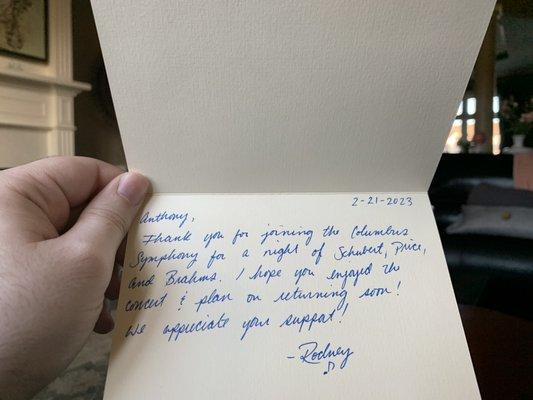 2-21-2023
Anthony,
Thank you for joining the Columbus
Symphony for a night of Schubert, Price,
and Brahms. I hope you enjoyed the
concert & plan on returning soon!
We appreciate your support!
-Rodney
♫